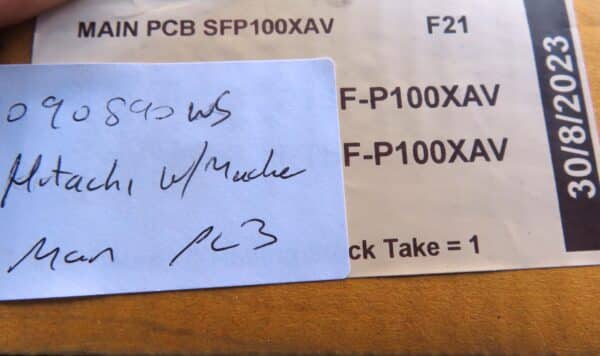 MAIN PCB SFP100XAV F21
30/8/2023
F-P100XAV
F-P100XAV
ck Take = 1
090890WS
Hitachi W/Mache
Man PCB